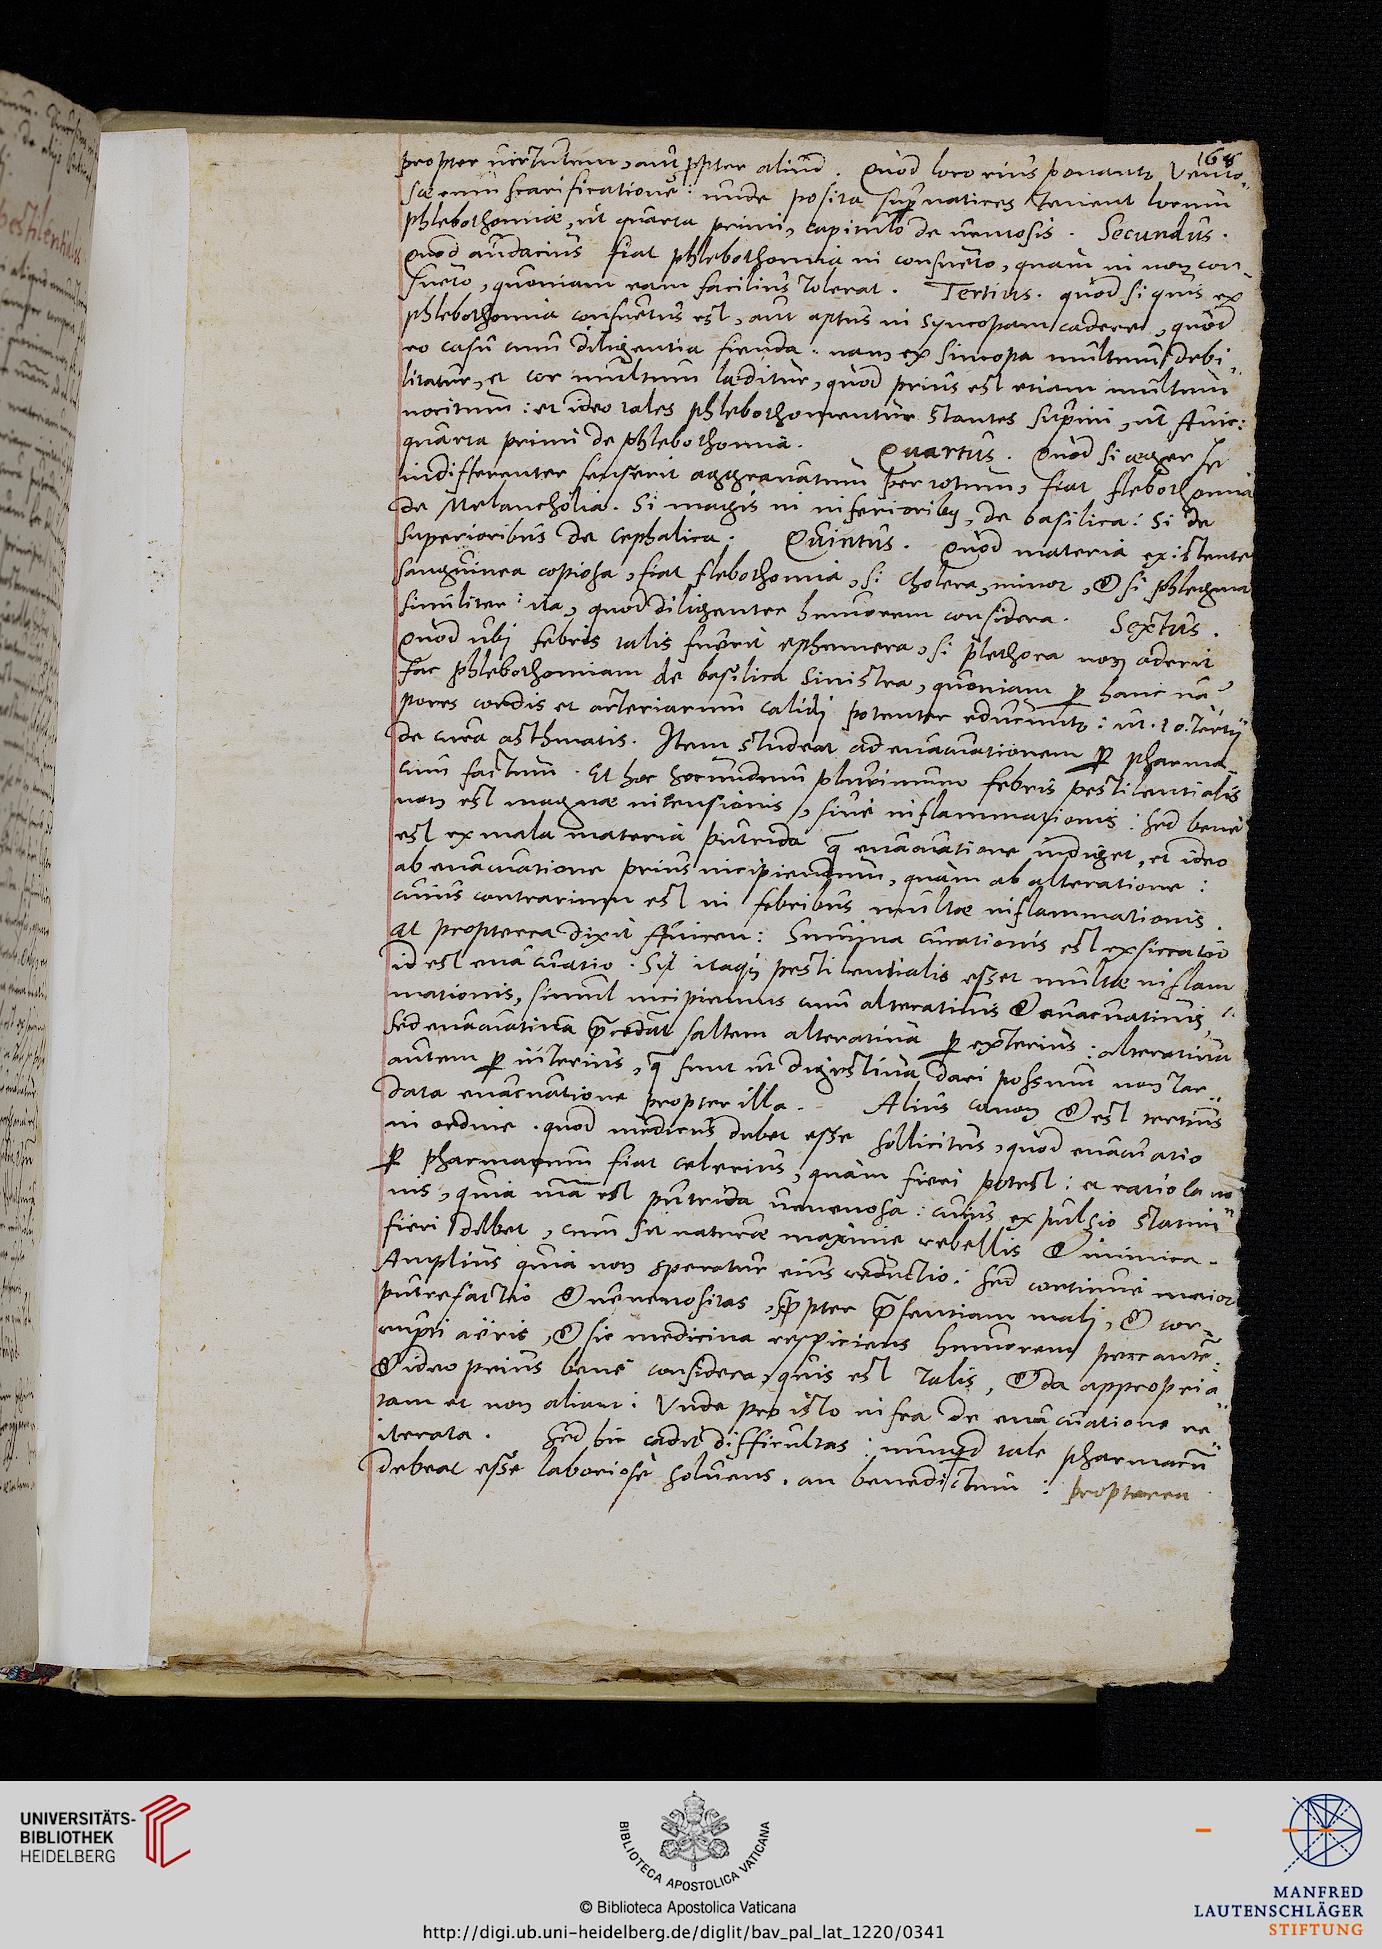 168
propter uirtutem, aut ppter aliud. Quod loco eius ponantr Vento„
sæ cum scarificatione: unde posita supra natices tenent locum
phlebothomiæ, ut quarta primi, capitulo de uentosis. Secundus.
Quod audacius fiat phlebothomia in consueto, quàm in non con„
sueto, quoniam eam facilius tolerat. Tertius. quòd si quis ex
phlebothomia consuetus est, aut aptus in syncopam cadere, quòd
eo casu cum diligentia fienda: nam ex sincopa multum debi„
litatur, et cor multum læditur, quod prius est etiam multum
nocitum: et ideo tales phlebothomentur stantes supini, ut Auic:
quarta primi de phlebothomia. Quartus. Quod si æger se
indifferenter senserit aggrauatum per totum, fiat flebothomia
de Melancholia. Si magis in inferioribq, de basilica: Si de
superioribus de cephalica. Quintus. Quod materia existente
sanguinea copiosa, fiat flebothomia, si cholera, minor, & si phlegma
similiter: ita, quod diligenter humorem considera. Sextus.
Quod ubi febris talis fuerit ephemera, si plethora non aderit
fac phlebothomiam de basilica sinistra, quoniam p hanc ua„
pores cordis et arteriarum calidi potenter educuntr: ut. 10. tertij
de cura asthmatis. Item studeat ad euacuationem p pharma„
cum factum. Et hoc secundum plurimum febris pestilentialis
non est magnæ intensionis, siue inflammationis: sed bene
est ex mala materia putrida q euacuatione indiget, et ideo
ab euacuatione prius incipiendum, quàm ab alteratione:
cuius contrarium est in febribus multæ inflammationis.
at propterea dixit Auicen: Summa curationis est exsiccatio
id est euacuatio. Si itaq pestilentialis esset multæ inflam
mationis, simul incipiemus cum alteratiuis & euacuatiuis,
sed euacuatiua præcedat saltem alteratiua p exterius: alteratiua
autem p interius, q sunt ut digestiua dari possunt non tar„
data euacuatione propter illa. Alius canon & est tertius
in ordine. quod medicus debet esse sollicitus, quod euacuatio
p pharmacum fiat celerius, quàm fieri potest: et ratio la
nis, quia mã est putrida uenenosa: cuius expulsio statim
fieri debet, cum sit naturæ maximè rebellis & inimica.
Amplius quia non speratur eius reductio: sed continuè maior
putrefactio & uenenositas, ppter præsentiam mali, & cor„
rupti aëris, & sic medicina respiciens humorem peccantẽ:
& ideo prius benè considera, quis est talis, & da appropria„
tam et non aliam: Vnde pro isto infra de euacuatione re„
iterata. Sed hic cadit difficultas: nunquid tale pharmacũ
debeat esse laboriosè soluens, an benedictum: propterea
UNIVERSITÄTS-
BIBLIOTHEK
HEIDELBERG
BIBLIOTECA APOSTOLICA VATICANA
© Biblioteca Apostolica Vaticana
http://digi.ub.uni-heidelberg.de/diglit/bav_pal_lat_1220/0341
MANFRED
LAUTENSCHLÄGER
STIFTUNG